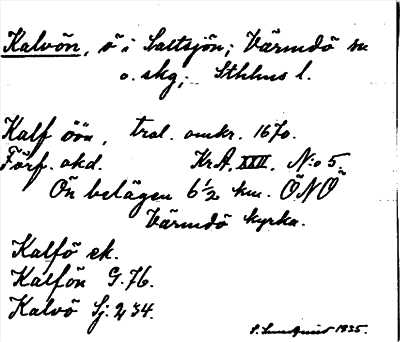 Kalvön, ö i Saltsjön; Värmdö sn
o. skg; Sthlms l.
Kalf öön, trol. omkr. 1670.
Förf. okd. KrA. XXII. N:o 5.
Ön belägen 6½ km. ÖNÖ
Värmdö kyrka.
Kalfö ek.
Kalfön G. 76.
Kalvö Sj. 234.
1935.